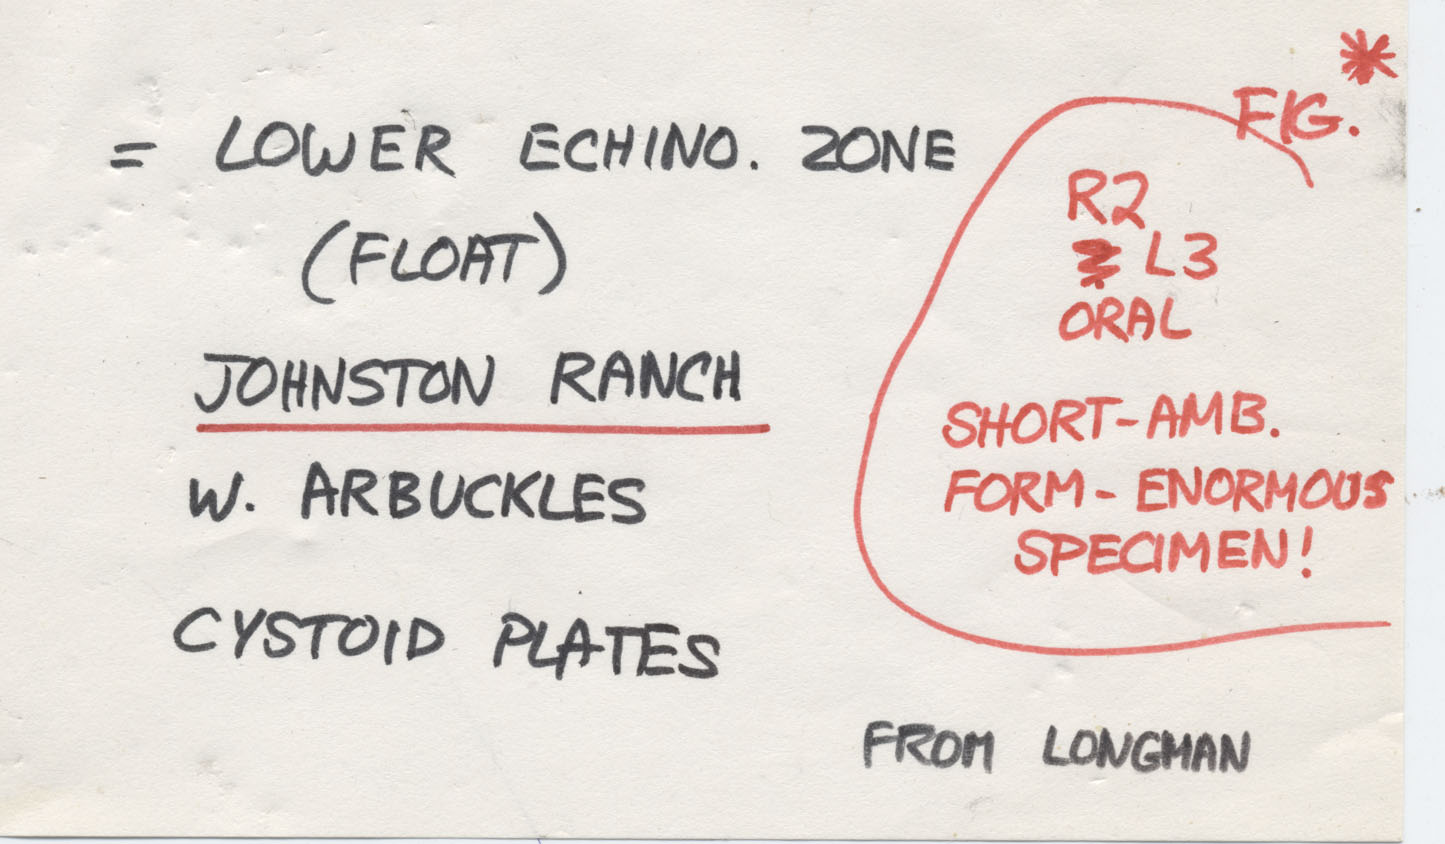 = LOWER ECHINO. ZONE
(FLOAT)
JOHNSTON RANCH
W. ARBUCKLES
CYSTOID PLATES
FROM LONGMAN
*
FIG.
R2
L3
ORAL
SHORT-AMB.
FORM - ENORMOUS
SPECIMEN!